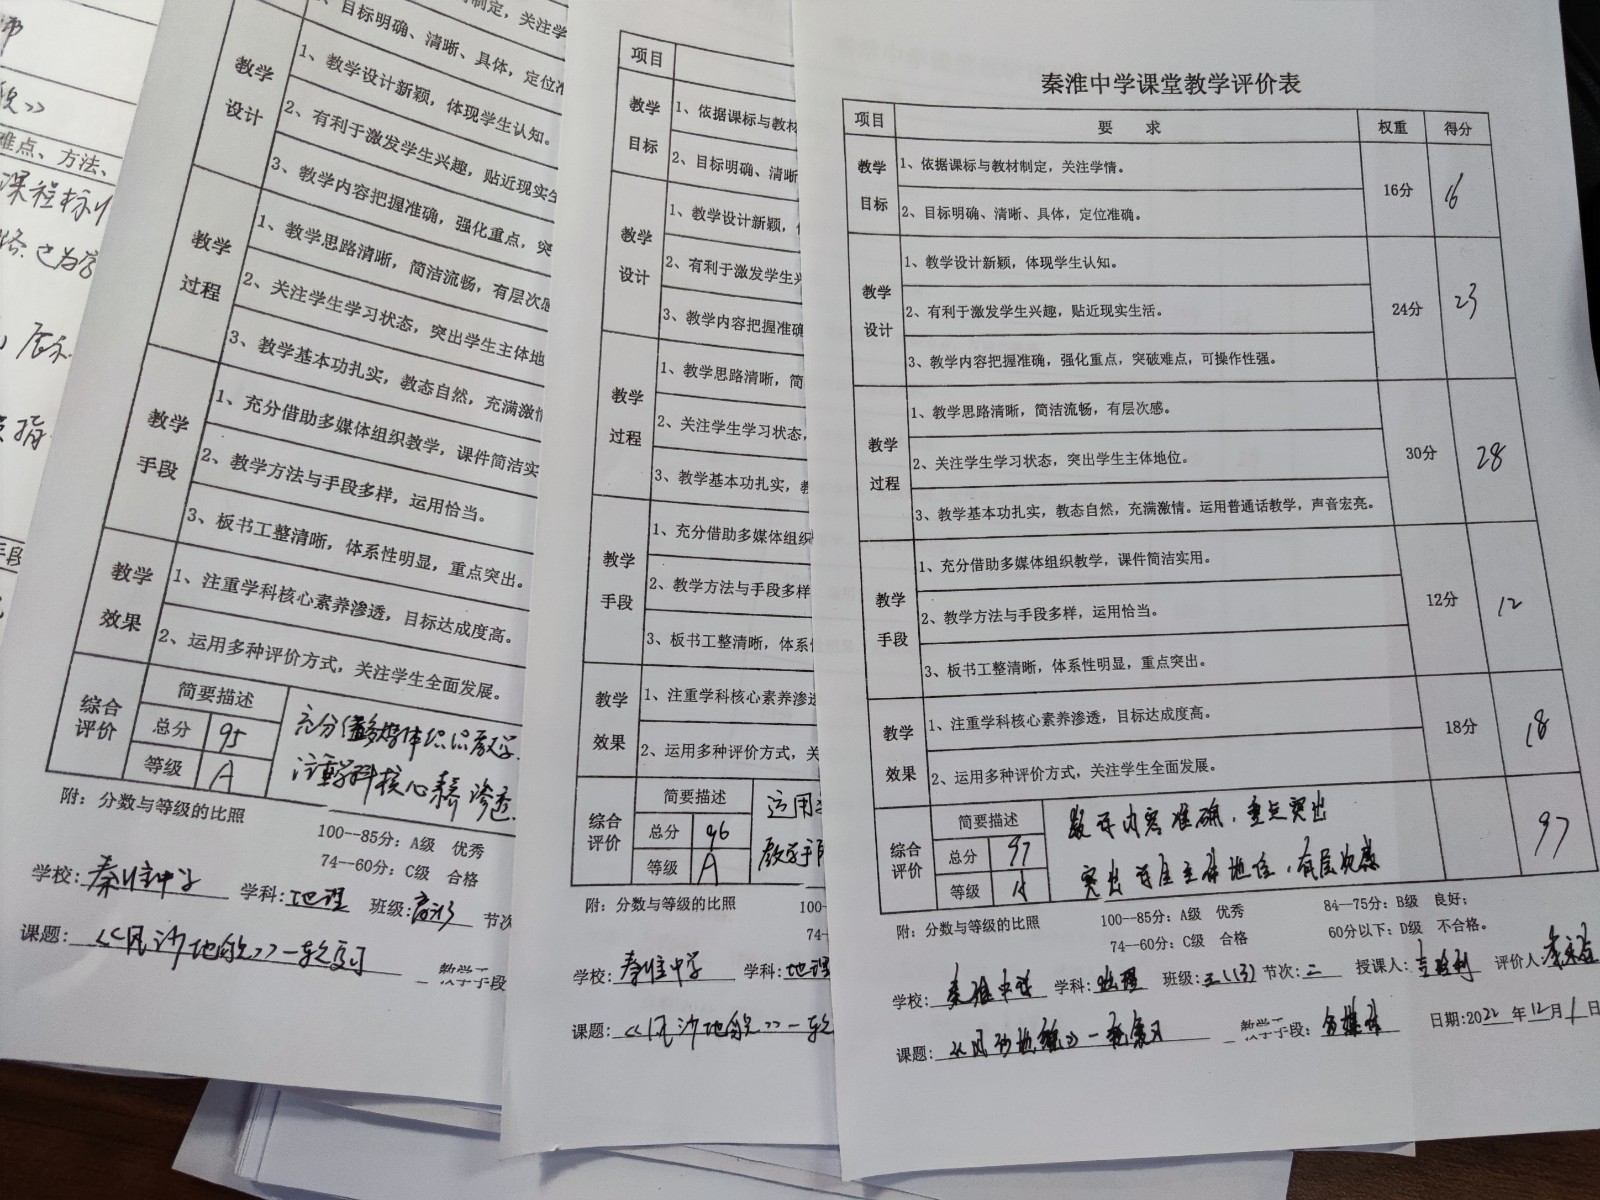 师
难点、方法、
课程标
展示
指
手段
制定，关注学
、目标明确、清晰、具体，定位准
教学
设计
1、教学设计新颖，体现学生认知。
2、有利于激发学生兴趣，贴近现实生
3、教学内容把握准确，强化重点，突
教学
过程
1、教学思路清晰，简洁流畅，有层次感
2、关注学生学习状态，突出学生主体地
3、教学基本功扎实，教态自然，充满激情
教学
手段
1、充分借助多媒体组织教学，课件简洁实
2、教学方法与手段多样，运用恰当。
3、板书工整清晰，体系性明显，重点突出。
教学
效果
1、注重学科核心素养渗透，目标达成度高。
2、运用多种评价方式，关注学生全面发展。
综合
评价
简要描述
总分 95
等级 A
充分借多媒体组织教学.
注重学科核心素养渗透.
附：分数与等级的比照
100--85分：A级 优秀
74--60分：C级 合格
学校：秦淮中学 学科：地理 班级： 节次
课题：《风沙地貌》一轮复习
教学手段
项目
教学
目标
1、依据课标与教材
2、目标明确、清晰
教学
设计
1、教学设计新颖，
2、有利于激发学生兴
3、教学内容把握准确
教学
过程
1、教学思路清晰，简
2、关注学生学习状态，
3、教学基本功扎实，教
教学
手段
1、充分借助多媒体组织
2、教学方法与手段多样
3、板书工整清晰，体系
教学
效果
1、注重学科核心素养渗透
2、运用多种评价方式，关
综合
评价
简要描述
总分 96
等级 A
运用
教学手
附：分数与等级的比照
100-
74-
学校：秦淮中学 学科：地理
课题：《风沙地貌》一轮
秦淮中学课堂教学评价表
项目 要 求 权重 得分
教学
目标
1、依据课标与教材制定，关注学情。
2、目标明确、清晰、具体，定位准确。
16分 16
教学
设计
1、教学设计新颖，体现学生认知。
2、有利于激发学生兴趣，贴近现实生活。
3、教学内容把握准确，强化重点，突破难点，可操作性强。
24分 23
教学
过程
1、教学思路清晰，简洁流畅，有层次感。
2、关注学生学习状态，突出学生主体地位。
3、教学基本功扎实，教态自然，充满激情。运用普通话教学，声音宏亮。
30分 28
教学
手段
1、充分借助多媒体组织教学，课件简洁实用。
2、教学方法与手段多样，运用恰当。
3、板书工整清晰，体系性明显，重点突出。
12分 12
教学
效果
1、注重学科核心素养渗透，目标达成度高。
2、运用多种评价方式，关注学生全面发展。
18分 18
综合
评价
简要描述
总分 97
等级 A
教学内容准确，重点突出
突出学生主体地位，有层次感
97
附：分数与等级的比照
100--85分：A级 优秀 84--75分：B级 良好；
74--60分：C级 合格 60分以下：D级 不合格。
学校：秦淮中学 学科：地理 班级：三(13) 节次：二 授课人： 评价人：
课题：《风沙地貌》一轮复习 教学手段：多媒体 日期：2022年12月1日